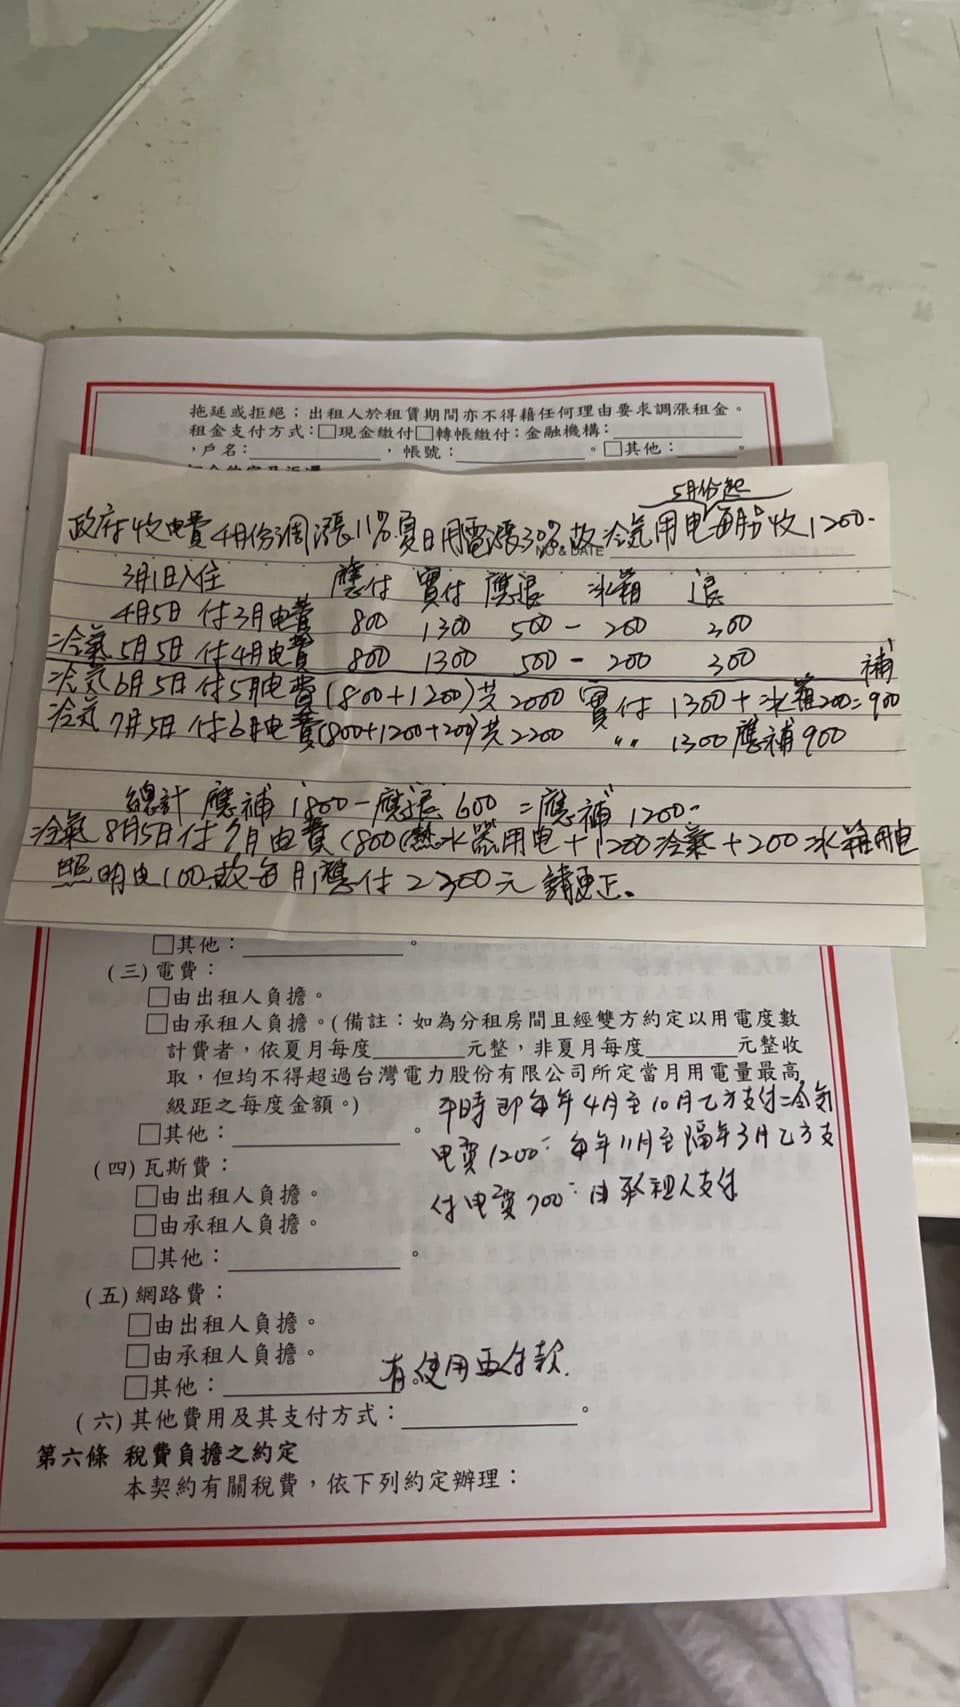 拖延或拒絕；出租人於租賃期間亦不得藉任何理由要求調漲租金。
租金支付方式：□現金繳付□轉帳繳付：金融機構：
，戶名： ，帳號： 。□其他：
5月份起
政府收电費4月份調漲11%夏日用電漲30%故冷氣用电每月收1200-
NO & DATE
3月1日入住 應付 實付 應退 冰箱 退
4月5日付3月电費 800 1300 500 - 200 300
冷氣5月5日付4月电費 800 1300 500 - 200 300 補
冷氣6月5日付5月电費(800+1200)共2000 實付 1300+冰箱200=900
冷氣7月5日付6月电費(800+1200+200)共2200 〃 1300應補900
總計 應補1800-應退600=應補1200-
冷氣8月5日付7月电費(800(熱水器用电+1200冷氣+200冰箱用电
照明电100故每月應付2300元 請更正。
□其他： 。
(三)電費：
□由出租人負擔。
□由承租人負擔。(備註：如為分租房間且經雙方約定以用電度數
計費者，依夏月每度 元整，非夏月每度 元整收
取，但均不得超過台灣電力股份有限公司所定當月用電量最高
級距之每度金額。)
平時即每年4月至10月乙方支付冷氣
□其他： 。
电費1200 每年11月至隔年3月乙方支
(四)瓦斯費：
付电費700 由承租人支付
□由出租人負擔。
□由承租人負擔。
□其他： 。
(五)網路費：
□由出租人負擔。
□由承租人負擔。
□其他： 有使用再付款.
(六)其他費用及其支付方式： 。
第六條 稅費負擔之約定
本契約有關稅費，依下列約定辦理：